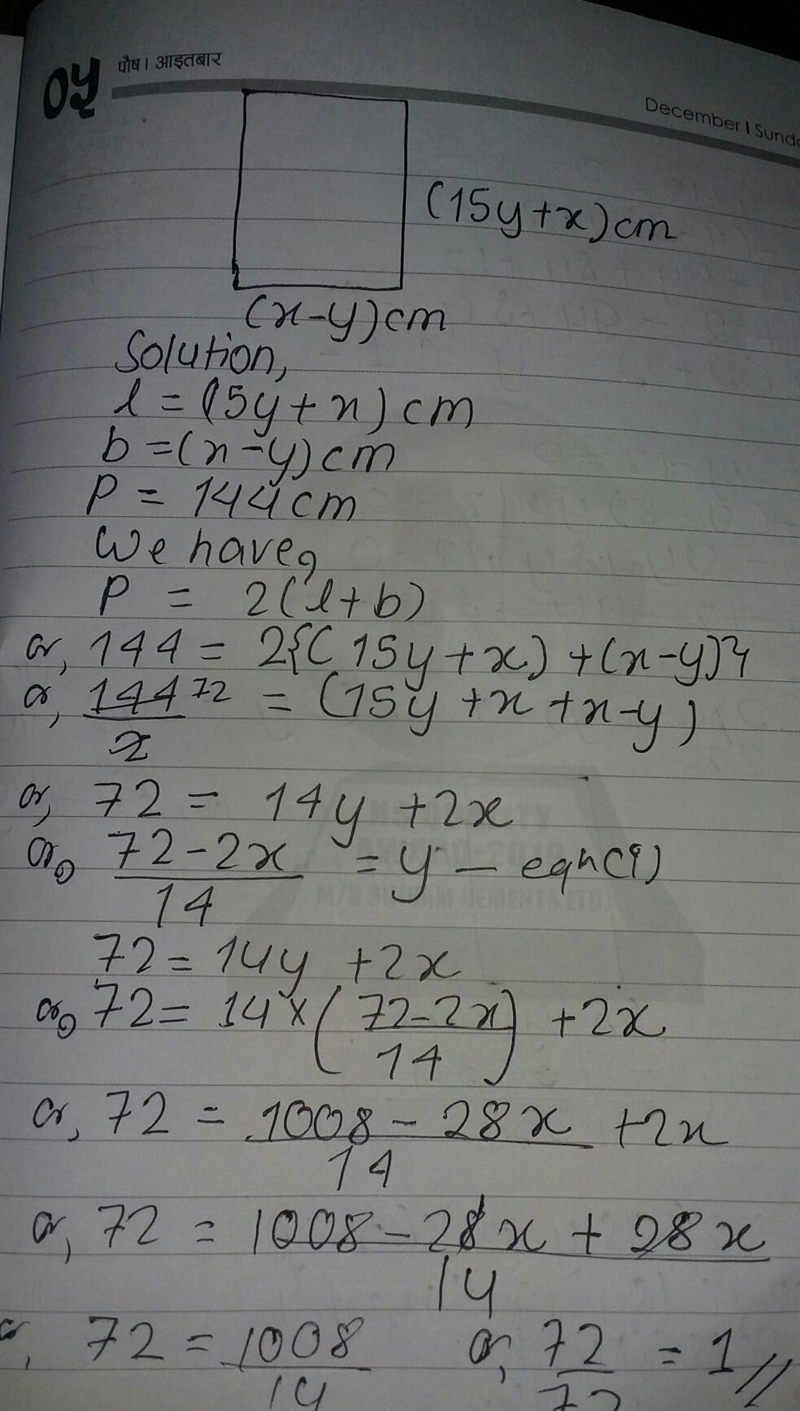 ०५ पौष। आइतबार
December I Sund
(15y+x)cm
(x-y)cm
Solution,
l = (15y+x) cm
b = (x-y) cm
P = 144cm
We have,
P = 2(l+b)
or, 144 = 2{(15y+x)+(x-y)}
or, 144 72 / 2 = (15y+x+x-y)
or, 72 = 14y+2x
or, 72-2x / 14 = y - eqn(i)
72 = 14y+2x
or, 72 = 14×(72-2x / 14)+2x
or, 72 = 1008-28x / 14 +2x
or, 72 = 1008-28x+28x / 14
or, 72 = 1008 / 14 or, 72 / 72 = 1//